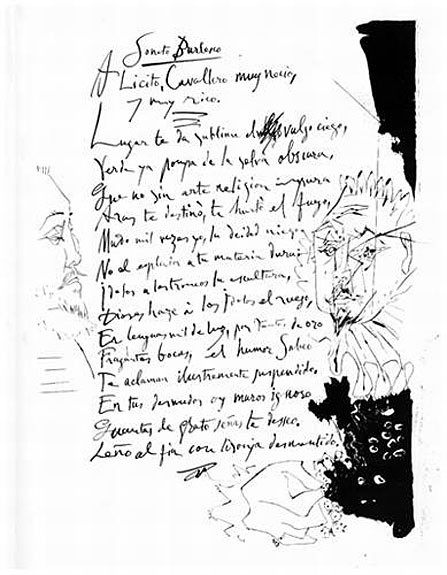 Soneto Burlesco
A Licito, Cavallero muy necio,
y muy rico.
Lugar te da sublime el vulgo ciego,
Verde ya pompa de la selva obscura,
Que no sin arte religion impura
Aras te destinò, te hurtò el fuego,
Mudo mil vezes yo, la deidad niego
No el esplendor a tu materia dura
Idolos a los troncos la escultura,
Dioses haze à los Idolos el ruego,
En lenguas mil de luz, por tantas de oro
Fragantes bocas, el humor Sabeo
Te aclaman ilustremente suspendido.
En tus desnudos oy muros ignoro
Quantas de grato señas te deseo.
Leño al fin con lisonja desmentido.